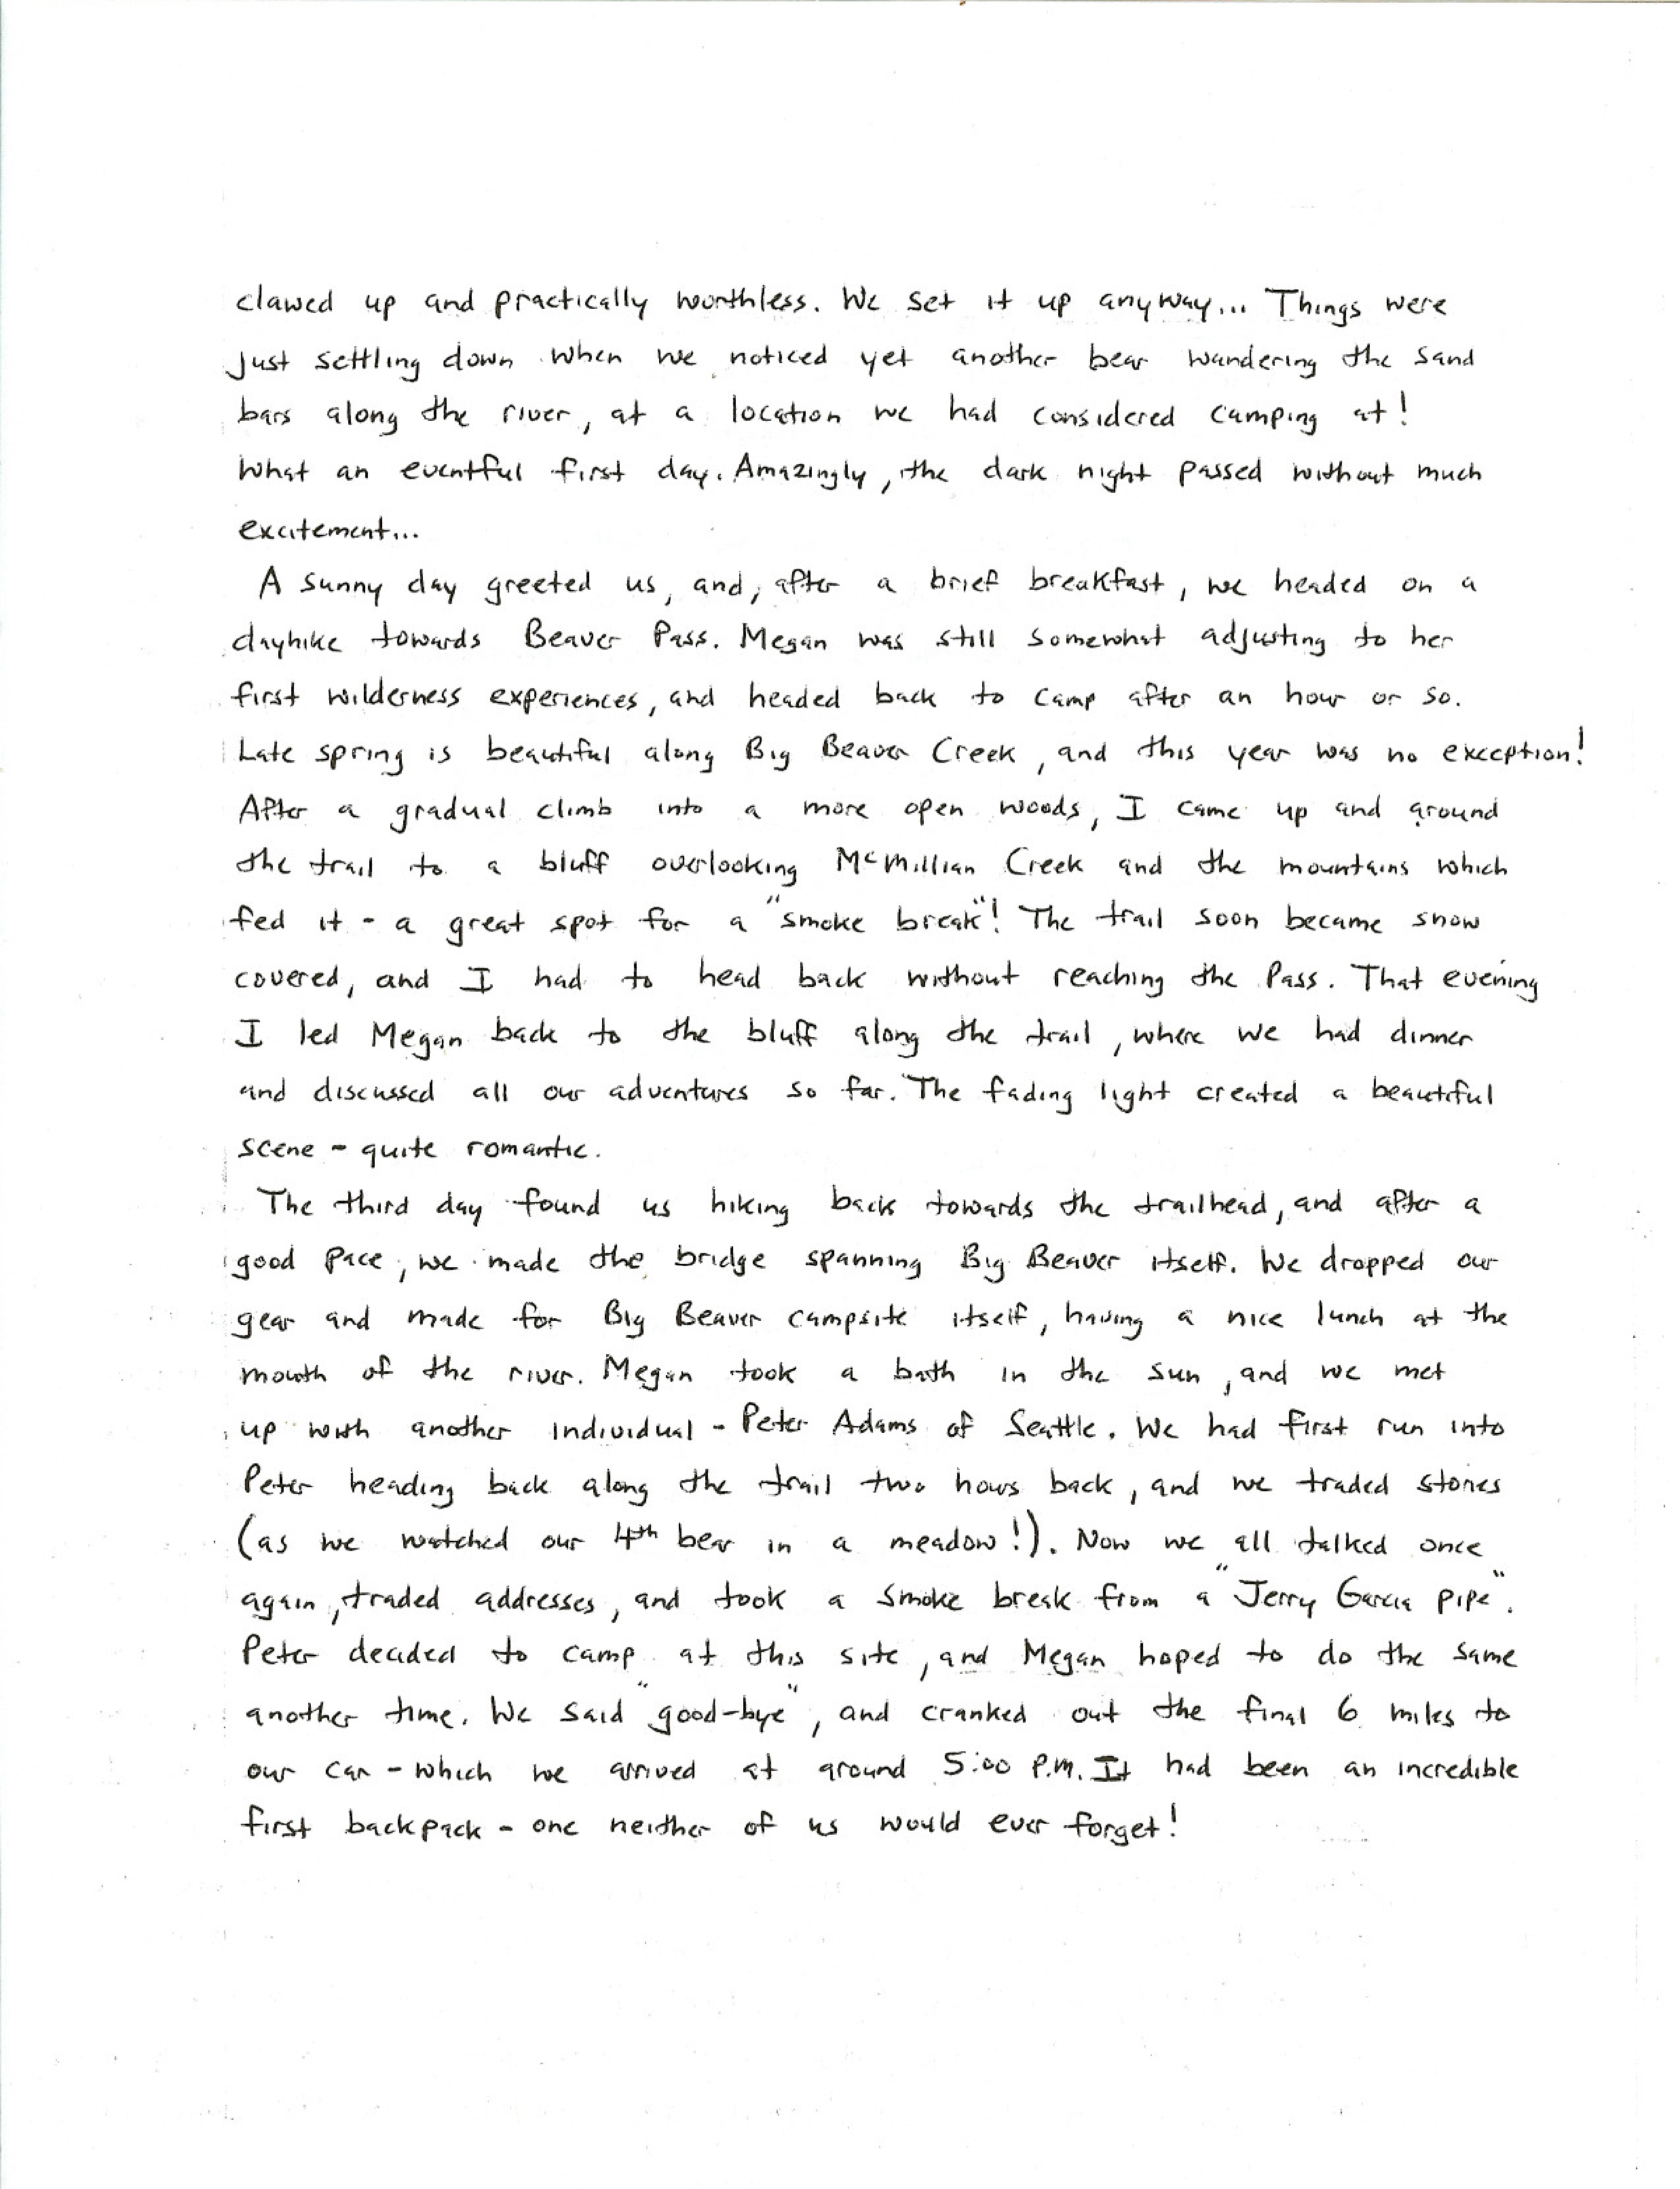 clawed up and practically worthless. We set it up anyway... Things were
just settling down when we noticed yet another bear wandering the sand
bars along the river, at a location we had considered camping at!
What an eventful first day. Amazingly, the dark night passed without much
excitement...
A sunny day greeted us, and, after a brief breakfast, we headed on a
dayhike towards Beaver Pass. Megan was still somewhat adjusting to her
first wilderness experiences, and headed back to camp after an hour or so.
Late spring is beautiful along Big Beaver Creek, and this year was no exception!
After a gradual climb into a more open woods, I came up and around
the trail to a bluff overlooking McMillian Creek and the mountains which
fed it - a great spot for a "smoke break"! The trail soon became snow
covered, and I had to head back without reaching the Pass. That evening
I led Megan back to the bluff along the trail, where we had dinner
and discussed all our adventures so far. The fading light created a beautiful
scene - quite romantic.
The third day found us hiking back towards the trailhead, and after a
good pace, we made the bridge spanning Big Beaver itself. We dropped our
gear and made for Big Beaver campsite itself, having a nice lunch at the
mouth of the river. Megan took a bath in the sun, and we met
up with another individual - Peter Adams of Seattle. We had first run into
Peter heading back along the trail two hours back, and we traded stories
(as we watched our 4th bear in a meadow!). Now we all talked once
again, traded addresses, and took a smoke break from a "Jerry Garcia pipe".
Peter decided to camp at this site, and Megan hoped to do the same
another time. We said "good-bye", and cranked out the final 6 miles to
our car - which we arrived at around 5:00 P.M. It had been an incredible
first backpack - one neither of us would ever forget!